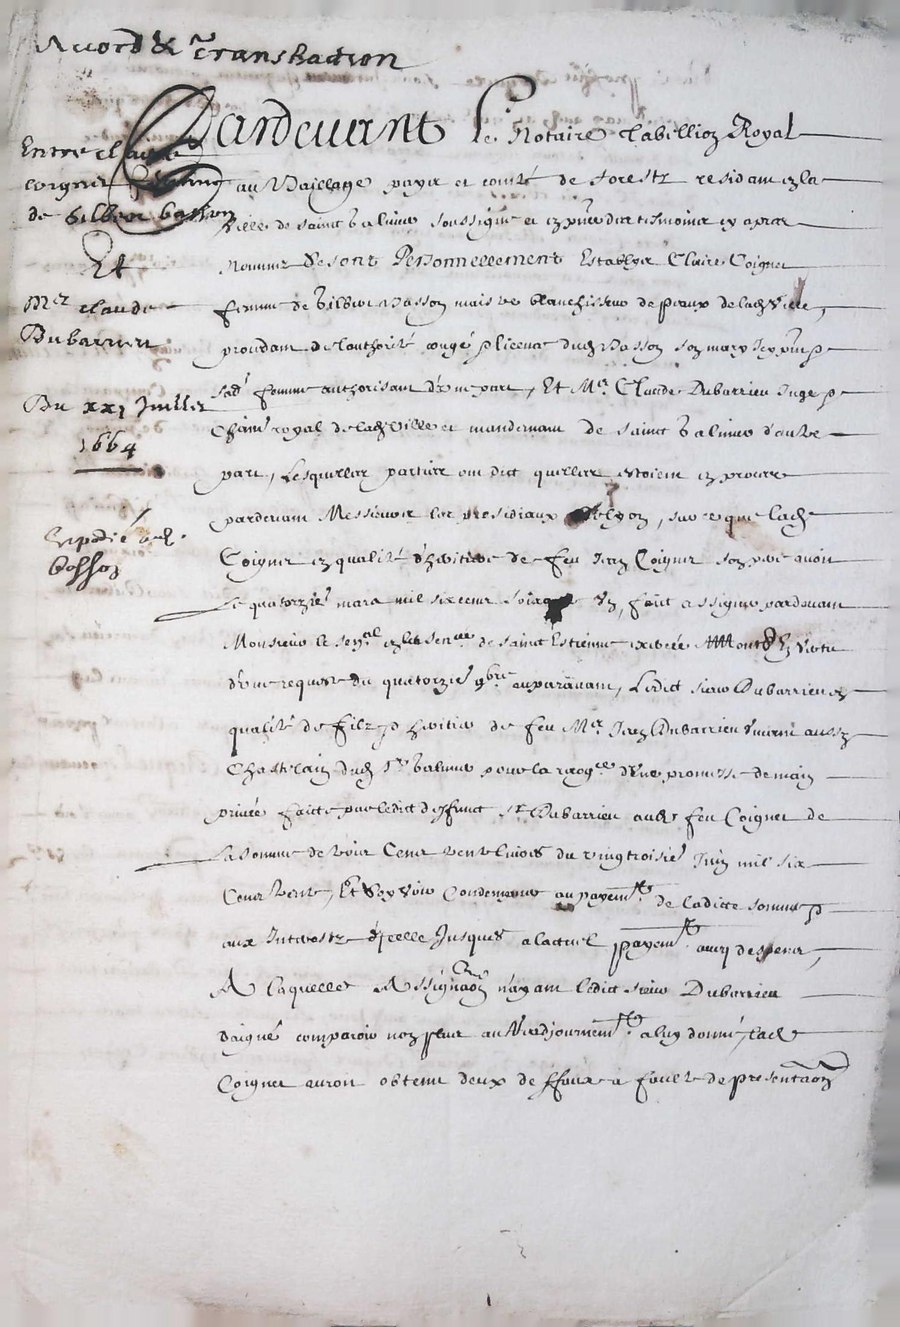 Accord & Transhaction
Entre claire
coignet femme
de Gilbert basson
Et
Mer claude
Dubarrieu
Du xxj Juillet
1664
Expedié a lad.
bosson
Pardevant Le Notaire Tabellion Royal
au Baillage, pays et comté de forestz residant en la
Ville de sainct Galmier soussigné et en presence des tesmoins cy apres
Nommés Se sont Personnellement Establys Claire Coignet
femme de Gilbert Basson maistre blanchisseur de peaux de lad Ville,
procedant de l'authorité congé & licence dud Basson son mary icy present &
sad. femme authorisant d'une part, Et Mer Claude Dubarrieu Juge &
Chatn royal de lad Ville et mandement de sainct Galmier d'autre
part, Lesquelles parties ont dict quelles estoient en proces
pardevant Messieurs les presidiaux de Lyon, sur ce que lade
Coignet en qualité d'heritiere de feu Jean Coignet son pere avoit
Le quatorzie mars mil six cent soixante Un, faict assigner pardevant
Monsieur le senal en la senee de sainct Estienne exercée A Montd En vertu
d'une requeste du quatorzie 9bre auparavant, Ledict sieur Dubarrieu en
qualité de filz & heritier de feu Mer Jean Dubarrieu vivant aussy
Chastelain dud St Galmier pour la recogce d'Une promesse de main
privée faicte par ledict deffunct sr Dubarrieu aud feu Coignet de
La somme de trois Cent trente livres du vingtroisie Juin mil six
Cent trente, Et s'y voir Condempner au payemt de ladicte somme &
aux Interestz d'jcelle Jusques a lactuel payemt avec despens,
A laquelle Assignaon n'ayant ledict sieur Dubarrieu
daigné comparoir non plus au Readjournemt a luy donné, lade
Coignet auroit obtenu deux deffaux a faulte de presentaon